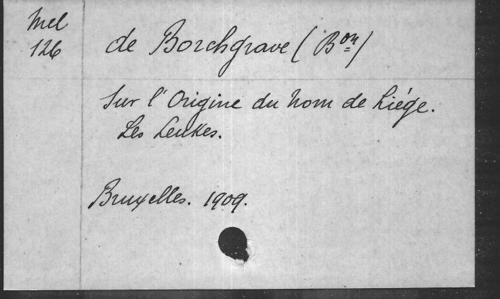 Mel
126
de Borchgrave (Bon)
Sur l'Origine du nom de Liége.
Les Leukes.
Bruxelles. 1909.